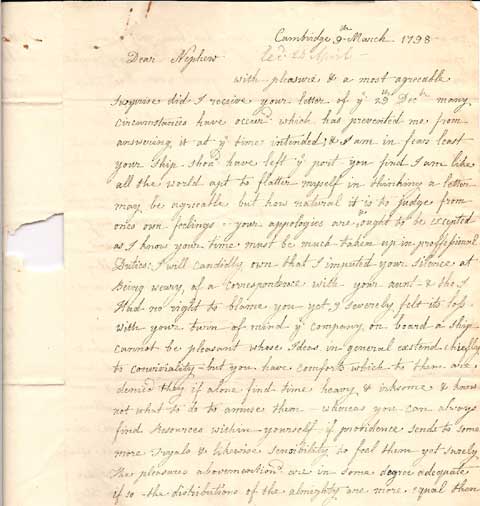 Cambridge 9th March 1798
Dear Nephew recd 23 April
with pleasure & a most agreeable
surprise did I receive your letter of ye 23d Decr many
circumstances have occurd which has prevented me from
answering it at ye time intended; & I am in fears least
your ship shoud have left ye port you find I am like
all the world apt to flatter myself in thinking a letter
may be agreeable but how natural it is to judge from
ones own feelings - your appologies are ought to be excepted
as I know your time must be much taken up in proffessional
Duties: I will candidly own that I imputed your silence at
Being weary, of a correspondence with your aunt & tho' I
Had no right to blame you yet I severely felt its loss
with your turn of mind ye company, on board a ship
cannot be pleasant whose Ideas in general extend cheifly
to conviviality - but you have comforts which to them are
denied they if alone find time heavy & irksome & know
not what to do to amuse them - whereas you can always
find resources within yourself - if providence sends to some
more Tryals & likewise sensibility to feel them yet surely
the pleasures abovemention'd are in some degree adequate
if so - the distributions of the almighty are more equal then